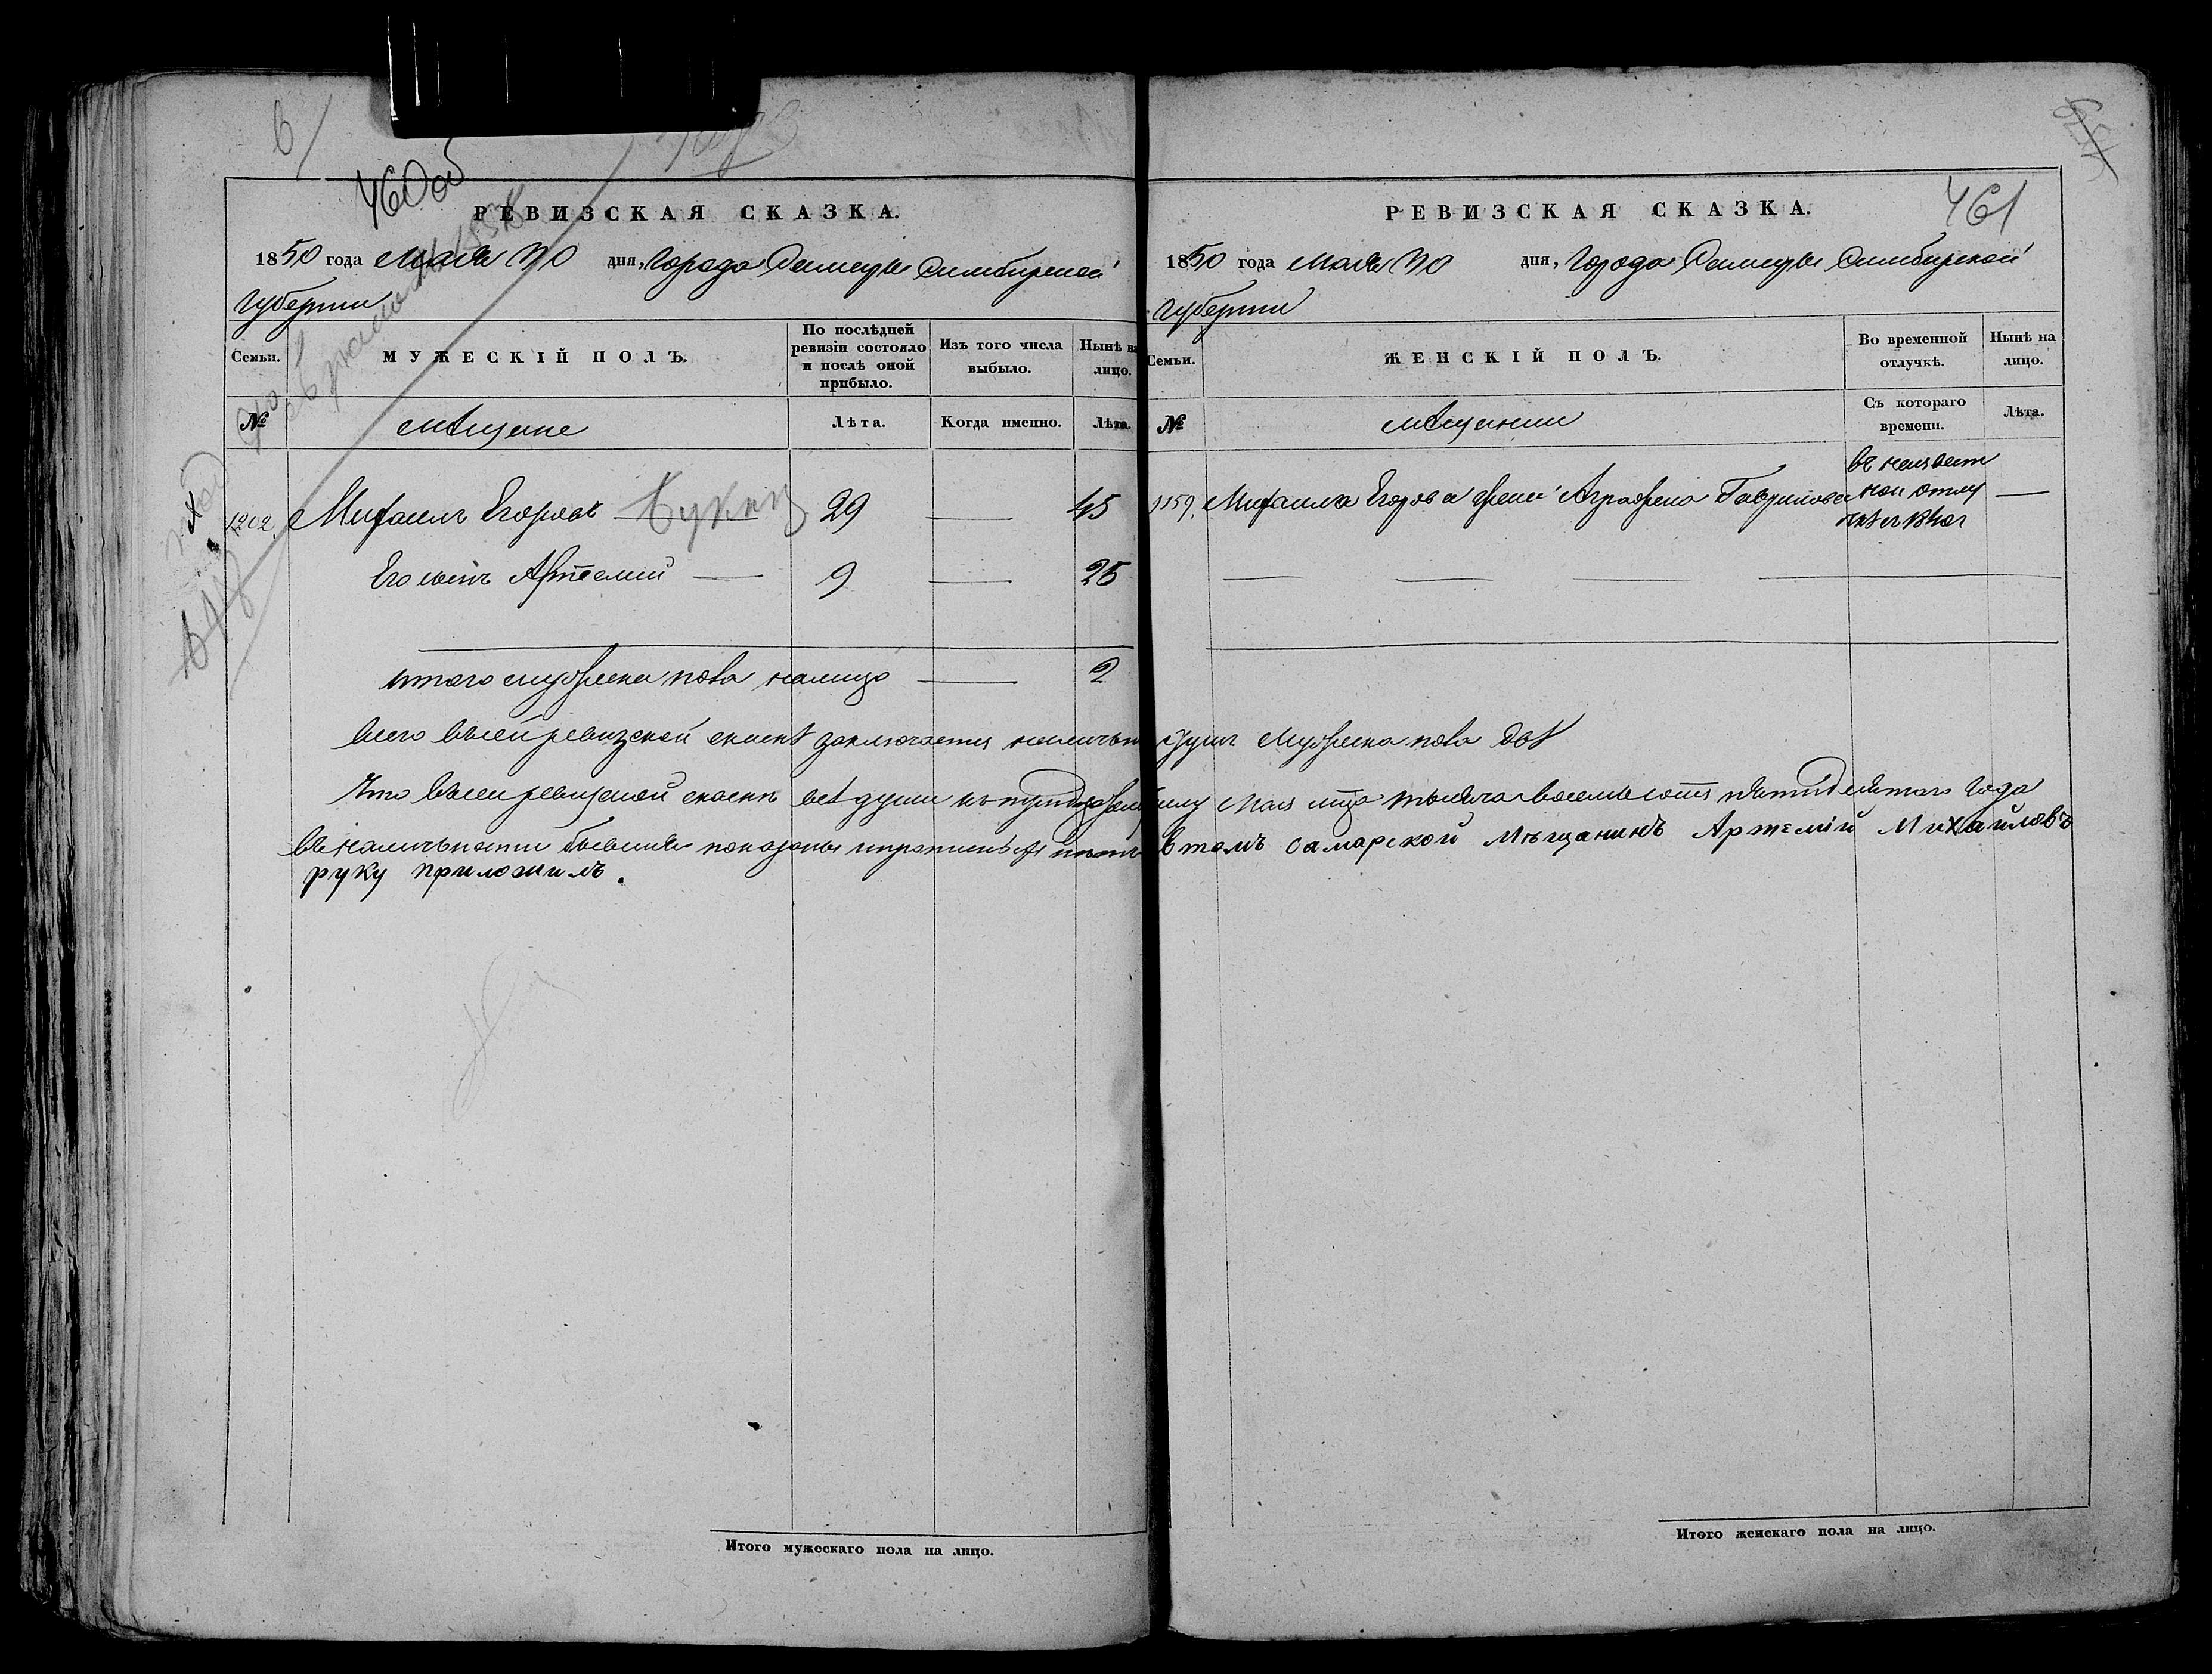 460об
РЕВИЗСКАЯ СКАЗКА.
1850 года Мая 30 дня, Города Самары Симбирской
Губернии
Семьи. МУЖЕСКІЙ ПОЛЪ. По послѣдней ревизіи состояло и послѣ оной прибыло. Изъ того числа выбыло. Нынѣ на лицо.
№ мѣщане Лѣта. Когда именно. Лѣта.
1202 Михаилъ Егоровъ — 29 — 45
Его сынъ Артемій — 9 — 25
итого мужеска пола налицо — 2
Всего въ сей ревизской сказкѣ заключается
Что въ сей ревизской сказкѣ всѣ души
въ наличности бывшия показаны
руку приложилъ.
Итого мужескаго пола на лицо.
461
РЕВИЗСКАЯ СКАЗКА.
1850 года Мая 30 дня, Города Самары Симбирской
Губернии
Семьи. ЖЕНСКІЙ ПОЛЪ. Во временной отлучкѣ. Нынѣ на лицо.
№ мѣщанки Съ котораго времени. Лѣта.
1159. Михаила Егорова жена Аграфена Гаврилова —
душъ Мужеска пола двѣ
Мая тысяча восемьсотъ пятидесятаго года
в томъ самарской мѣщанинъ Артемій Михайловъ
Итого женскаго пола на лицо.